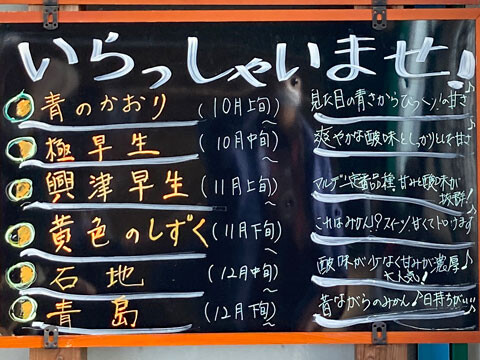 いらっしゃいませ!
青のかおり (10月上旬)〜 見た目の青さからびっくり!の甘さ♪
極早生 (10月中旬)〜 爽やかな酸味としっかりとした甘さ
興津早生 (11月上旬)〜 マルゲン定番品種 甘みと酸味が
抜群!
黄色のしずく (11月下旬)〜 これはみかん!?スイーツ!甘くてトロけます
石地 (12月中旬)〜 酸味が少なく甘みが濃厚♪
大人気!
青島 (12月下旬)〜 昔ながらのみかん♪日持ちが